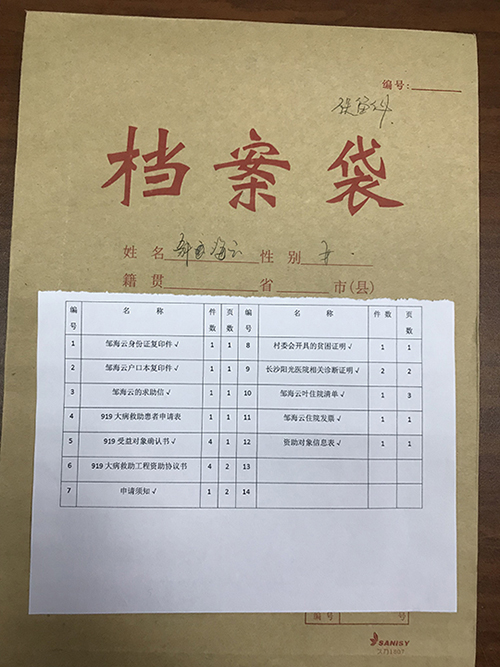 编号:
保留件
档案袋
姓名 邹海云 性别 女
籍贯 省 市(县)
编号 名 称 件数 页数 编号 名 称 件数 页数
1 邹海云身份证复印件√ 1 1 8 村委会开具的贫困证明√ 1 1
2 邹海云户口本复印件√ 1 1 9 长沙阳光医院相关诊断证明√ 2 2
3 邹海云的求助信√ 1 1 10 邹海云叶住院清单√ 1 3
4 919大病救助患者申请表 1 1 11 邹海云住院发票√ 1 1
5 919受益对象确认书√ 4 1 12 资助对象信息表√ 1 1
6 919大病救助工程资助协议书 4 2 13
7 申请须知√ 1 2 14
编号 号
SANISY